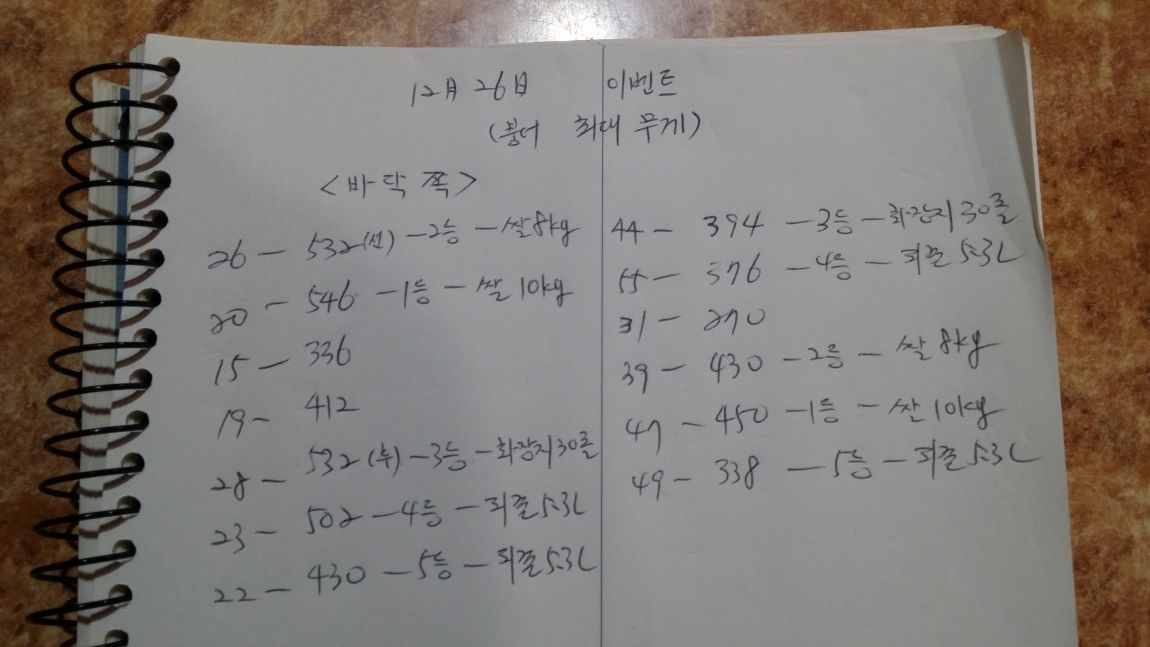 12月 26日 이벤트
(붕어 최대 무게)
<바닥 쪽>
26 - 532(선) - 2등 - 쌀 8kg
20 - 546 - 1등 - 쌀 10kg
15 - 336
19 - 412
28 - 532(후) - 3등 - 화장지 30롤
23 - 502 - 4등 - 퍼풀 5.3L
22 - 430 - 5등 - 퍼풀 5.3L
44 - 394 - 3등 - 화장지 30롤
55 - 376 - 4등 - 퍼풀 5.3L
31 - 270
39 - 430 - 2등 - 쌀 8kg
47 - 450 - 1등 - 쌀 10kg
49 - 338 - 5등 - 퍼풀 5.3L